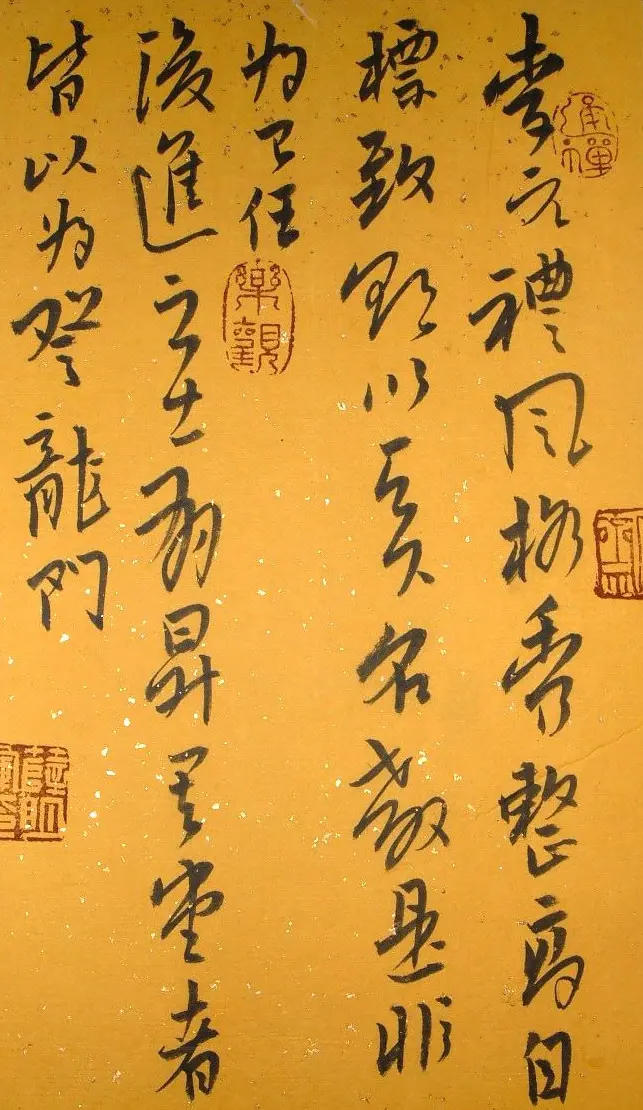 李元禮風格秀整高自
標致欲以天下名教是非
為己任
樂觀
後進之士有昇其堂者
皆以為登龍門